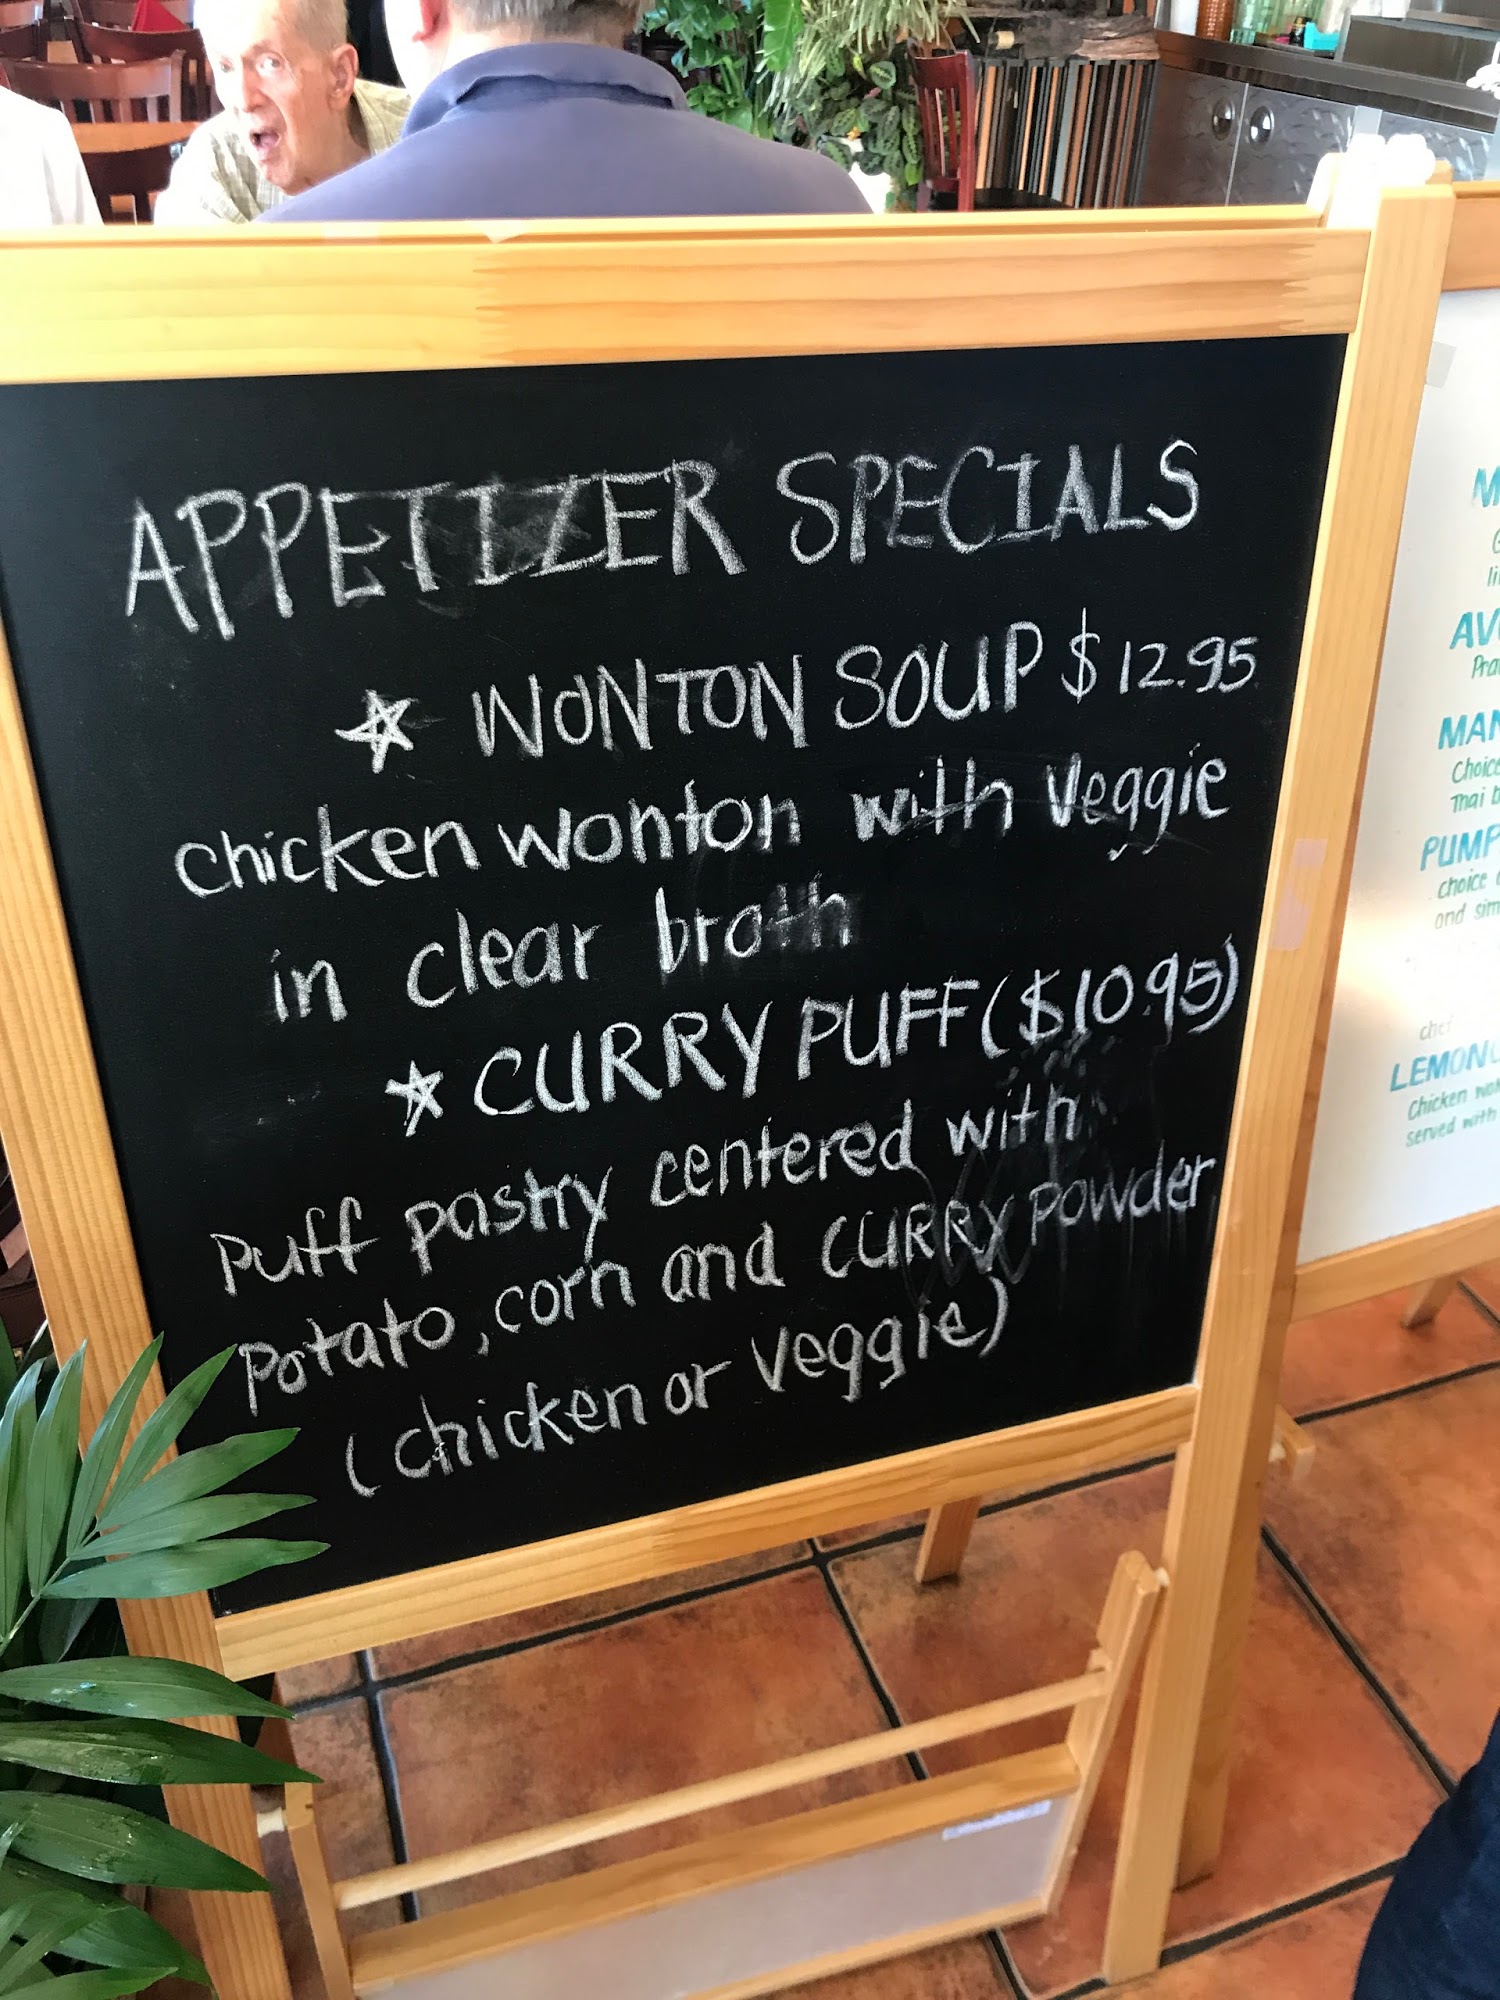 APPETIZER SPECIALS
☆ WONTON SOUP $12.95
chicken wonton with veggie
in clear broth
☆ CURRY PUFF ($10.95)
puff pastry centered with
potato, corn and CURRY powder
(chicken or veggie)
AV
MAN
Choice
Thai b
PUMP
choice
and sim
chef
LEMON
Chicken
served with